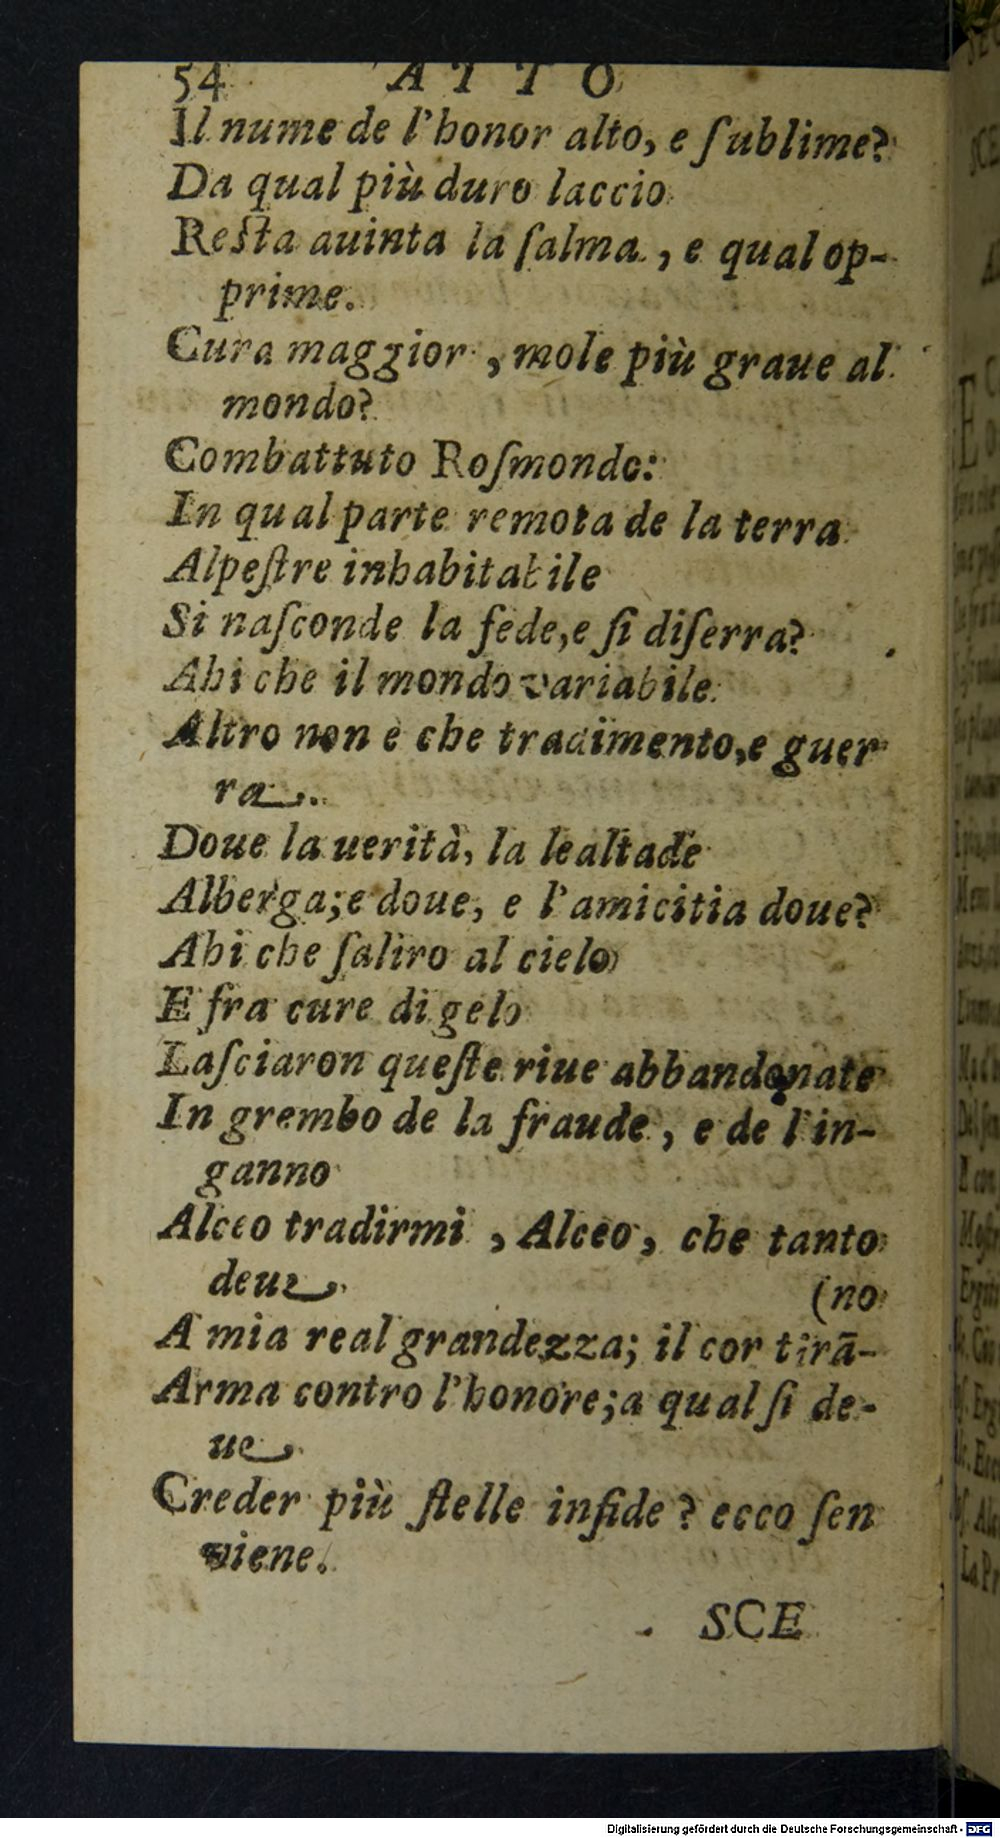 54 ATTO
Il nume de l'honor alto, e ſublime?
Da qual più duro laccio
Reſta auinta la ſalma, e qual op-
prime.
Cura maggior, mole più graue al
mondo?
Combattuto Roſmondo:
In qual parte remota de la terra
Alpeſtre inhabitabile
Si naſconde la fede, e ſi diſerra?
Ahi che il mondo variabile
Altro non è che tradimento, e guer
ra.
Doue la uerità, la lealtade
Alberga; e doue, e l'amicitia doue?
Ahi che ſaliro al cielo
E fra cure di gelo
Laſciaron queſte riue abbandonate
In grembo de la fraude, e de l'in-
ganno
Alceo tradirmi, Alceo, che tanto
deue
(no
A mia real grandezza; il cor tirā-
Arma contro l'honore; a qual ſi de-
ue
Creder più ſtelle infide? ecco ſen
viene.
SCE
Digitalisierung gefördert durch die Deutsche Forschungsgemeinschaft - DFG